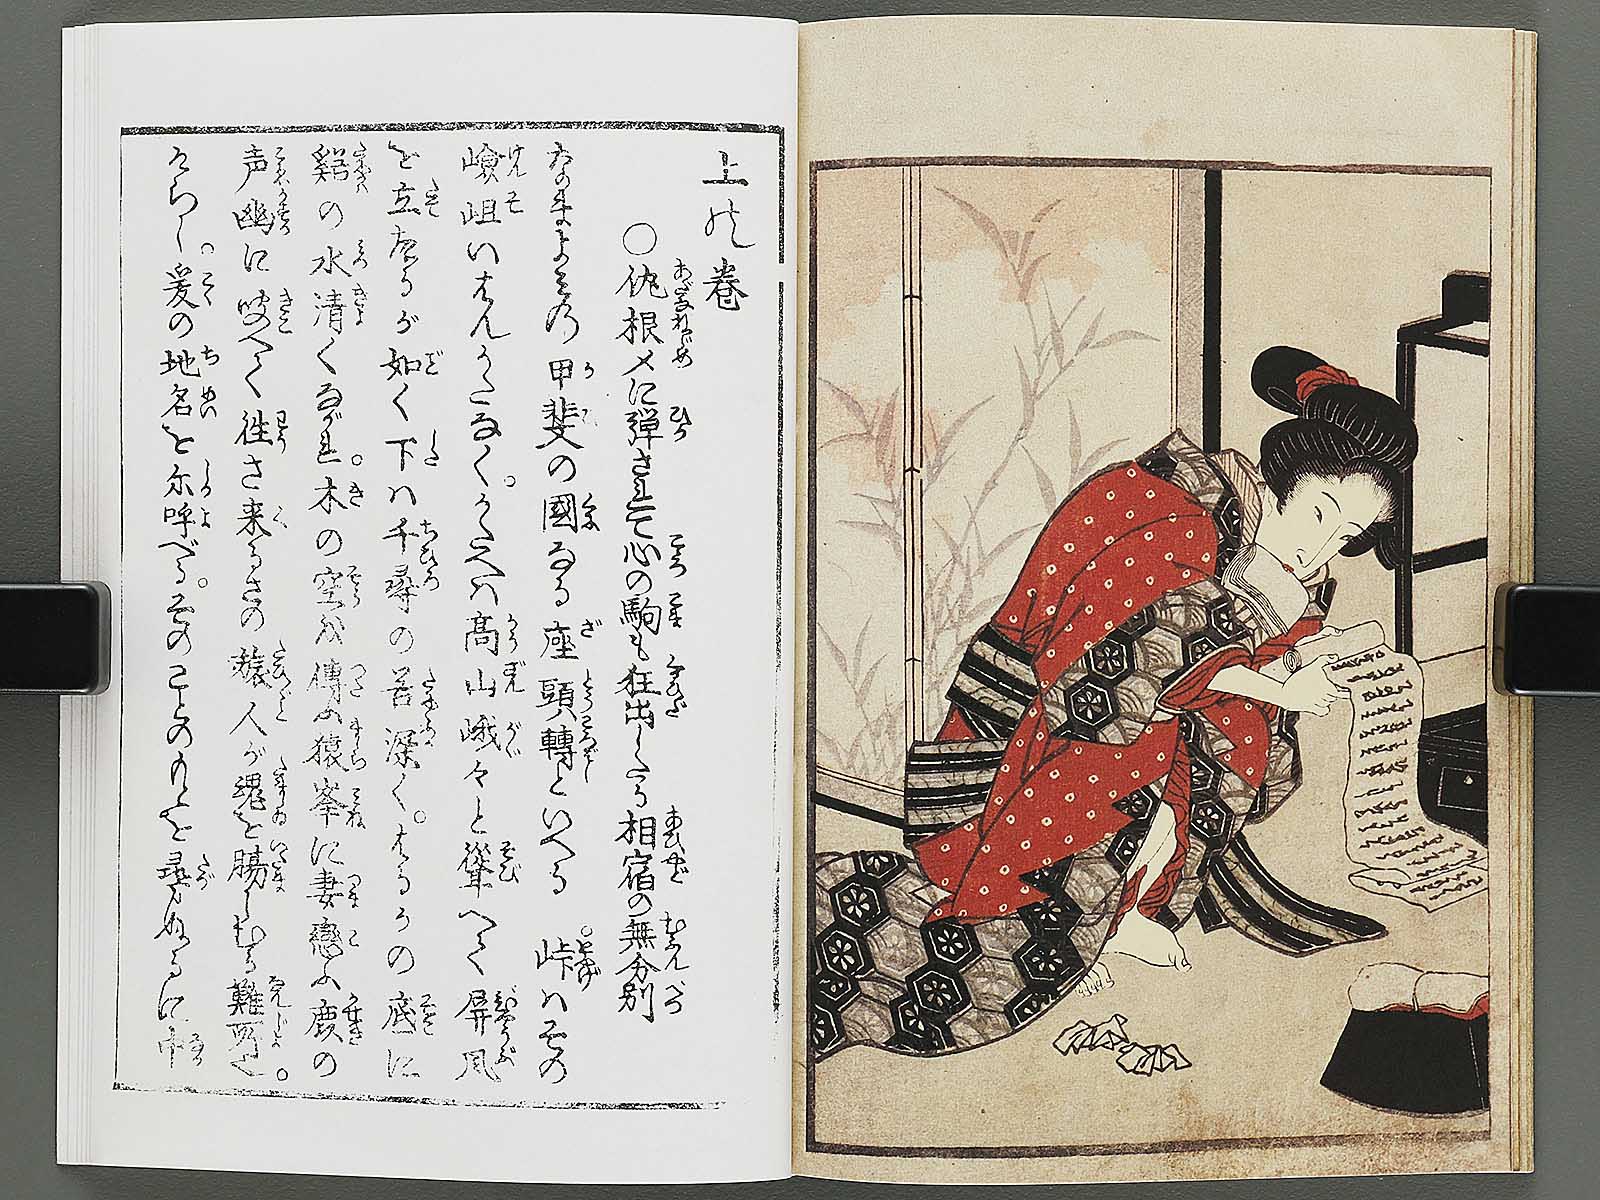 上の巻
○仇根〆に弾されて心の駒も狂出したる相宿の無分別
なのまよみの甲斐の國なる座頭轉といへる。峠ハその
嶮岨いはんかたなく。かたへハ高山峨々と聳へて屏風
を立たるが如く下ハ千尋の苔深く。はるかの底に
谿の水清くながれ。木の空は傳ふ猿峯に妻戀ふ鹿の
声幽に聞へて往さ来るさの旅人が魂を腸しむる難所也。
そもし。爰の地名を尓呼べる。そのことのもとを尋ぬるに中